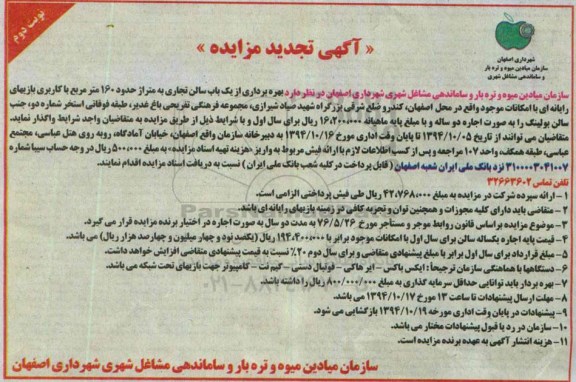 نوبت دوم
شهرداری اصفهان
سازمان میادین میوه و تره بار
و ساماندهی مشاغل شهری
« آگهی تجدید مزایده »
سازمان میادین میوه و تره بار و ساماندهی مشاغل شهری شهرداری اصفهان در نظر دارد بهره برداری از یک باب سالن تجاری به متراژ حدود ۱۶۰ متر مربع با کاربری بازیهای
رایانه ای با امکانات موجود واقع در محل اصفهان، کندرو ضلع شرقی بزرگراه شهید صیاد شیرازی، مجموعه فرهنگی تفریحی باغ غدیر، طبقه فوقانی استخر شماره دو، جنب
سالن بولینگ را به صورت اجاره دو ساله و با مبلغ پایه ماهیانه ریال برای سال اول و با شرایط ذیل از طریق مزایده به متقاضیان واجد شرایط واگذار نماید.
متقاضیان می توانند از تاریخ ۱۳۹۴/۱۰/۰۵ تا پایان وقت اداری مورخ ۱۳۹۴/۱۰/۱۶ به دبیرخانه سازمان واقع اصفهان، خیابان آمادگاه، روبه روی هتل عباسی، مجتمع
عباسی، طبقه همکف، واحد ۱۰۷ مراجعه و پس از کسب اطلاعات لازم با ارائه فیش مربوط به واریز «هزینه تهیه اسناد مزایده» به مبلغ ۵۰۰,۰۰۰ ریال در وجه حساب سیبا شماره
۳۱۰۰۰۰۳۰۳۱۰۰۷ نزد بانک ملی ایران شعبه اصفهان ( قابل پرداخت در کلیه شعب بانک ملی ایران ) نسبت به دریافت اسناد مزایده اقدام نمایند.
تلفن تماس ۳۲۶۶۳۶۰۲
۱- ارائه سپرده شرکت در مزایده به مبلغ ۴۲،۷۶۸،۰۰۰ ریال طی فیش پرداختی الزامی است.
۲- متقاضی باید دارای کلیه مجوزات و همچنین توان و تجربه کافی در زمینه بازیهای رایانه ای باشد.
۳- موضوع مزایده براساس قانون روابط موجر و مستاجر مورخ ۷۶/۵/۲۶ به مدت دو سال به صورت اجاره در اختیار برنده مزایده قرار می گیرد.
۴- قیمت پایه اجاره یکساله سالن برای سال اول با امکانات موجود برابر با ۱۹۴،۴۰۰،۰۰۰ ریال (یکصد نود و چهار میلیون و چهارصد هزار ریال) می باشد.
۵- مبلغ قرارداد برای سال اول برابر با مبلغ پیشنهادی متقاضی و برای سال دوم ۲۰٪ نسبت به قیمت پیشنهادی متقاضی افزایش خواهد داشت.
۶- دستگاهها با هماهنگی سازمان ترجیحاً : ایکس باکس - ایر هاکی - فوتبال دستی - گیم نت - کامپیوتر جهت بازیهای تحت شبکه می باشد.
۷- بهره بردار باید توانایی حداقل سرمایه گذاری به مبلغ ۸۰۰/۰۰۰/۰۰۰ ریال را داشته باشد.
۸- مهلت ارسال پیشنهادات تا ساعت ۱۳ مورخ ۱۳۹۴/۱۰/۱۷ می باشد.
۹- پیشنهادات در پایان وقت اداری مورخه ۱۳۹۴/۱۰/۱۹ بازگشایی می شود.
۱۰- سازمان در رد یا قبول پیشنهادات مختار می باشد.
۱۱- هزینه انتشار آگهی به عهده برنده مزایده است.
سازمان میادین میوه و تره بار و ساماندهی مشاغل شهری شهرداری اصفهان